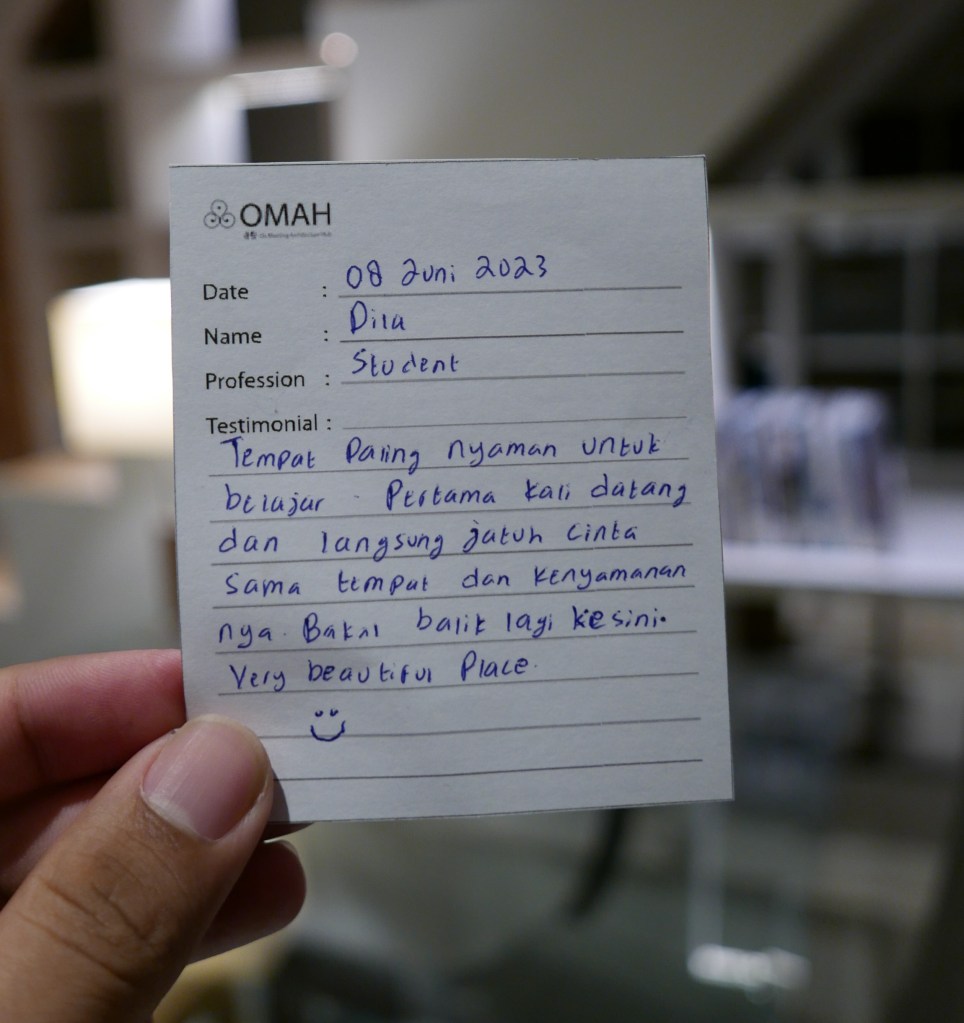 OMAH
Date : 08 Juni 2023
Name : Dila
Profession : Student
Testimonial :
Tempat Paling nyaman untuk
belajar . Pertama kali datang
dan langsung jatuh cinta
sama tempat dan kenyamanan
nya. Bakal balik lagi kesini.
Very beautiful Place.